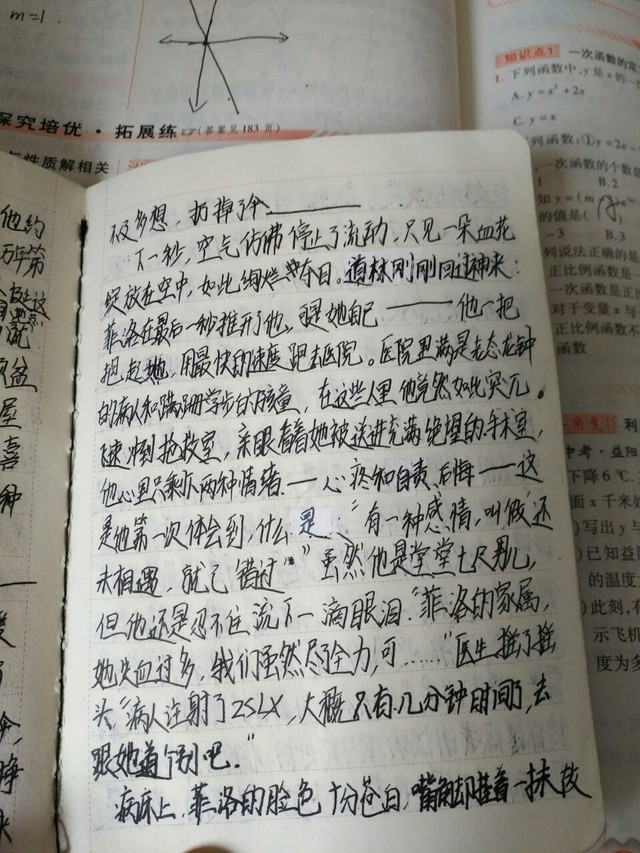 m=1.
探究培优·拓展练
(答案见183页)
与性质解相关
知识点1 一次函数的定
1. 下列函数中,y是x的一
A. y=x²+2x
C. y=x
列函数:①y=2x-
一次函数的个数是
B. 2
知y=(m
的值是(
-3 B. 3
列说法正确的是
正比例函数是
一次函数是正比
对于变量x与
正比例函数不
函数
角度1 利
中考·益阳
下降6℃.
面x千米处
)写出y与
)已知益阳
的温度为
)此刻,有
示飞机
度为多
他约
屋
喜
种
不及多想,扔掉了伞————
下一秒,空气仿佛停止了流动,只见一朵血花
绽放在空中,如此绚烂夺目。道林刚刚回过神来:
菲洛在最后一秒推开了他,可是她自己————他一把
抱起她,用最快的速度跑去医院。医院里满是老态龙钟
的病人和蹒跚学步的孩童,在这些人里他竟然如此突兀。
飞速冲到抢救室,亲眼看着她被送进充满绝望的手术室,
他心里只剩下两种情绪——心疼和自责、后悔——这
是他第一次体会到,什么是:“有一种感情,叫做‘还
未相遇,就已错过’。”虽然他是堂堂七尺男儿,
但他还是忍不住流下一滴眼泪。“菲洛的家属,
她失血过多,我们虽然尽了全力,可……”医生摇了摇
头,“病人注射了ZSLX,大概只有几分钟时间了,去
跟她道个别吧。”
病床上,菲洛的脸色十分苍白,嘴角却挂着一抹放